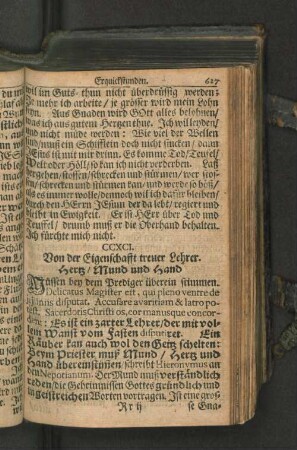 Erquickstunden. 627
wil im Guts-thun nicht überdrüssig werden;
Je mehr ich arbeite / je grösser wird mein Lohn
seyn. Aus Gnaden wird GOtt alles belohnen /
was ich aus gutem Hertzen thue. Ich wil leyden /
und nicht müde werden: Wie viel der Wellen
sind / muß mein Schifflein doch nicht sincken / dann
JEsus ist mit mir drinn. Es komme Tod / Teufel /
Welt oder Höll / so kan ich nicht verderben. Laß
hergehen / stossen / schrecken und stürmen / wer
stossen / schrecken und stürmen kan / und werde so böß /
als es immer wolle / dennoch wil ich dafür bleiben /
durch den HErrn JEsum der da lebt / regiert und
bleibt in Ewigkeit. Er ist HErr über Tod und
Teuffel / drumb muß er die Oberhand behalten.
Ich fürchte mich nicht.
CCXCI.
Von der Eigenschafft treuer Lehrer.
Hertz / Mund und Hand
Müssen bey dem Prediger überein stimmen.
Delicatus Magister est, qui pleno ventre de
jejuniis disputat. Accusare avaritiam & latro po-
test. Sacerdotis Christi os, cor manusque concor-
dent: Es ist ein zarter Lehrer / der mit vol-
lem Wanst vom Fasten disputiret. Ein
Räuber kan auch wol den Geitz schelten:
Beym Priester muß Mund / Hertz und
Hand übereinstimmen / schreibt Hieronymus an
den Nepotianum. Der Mund muß verständlich
reden / die Geheimnissen Gottes gründlich und
in geistreichen Worten vortragen. Ist eine gros-
R r ij se Gna-